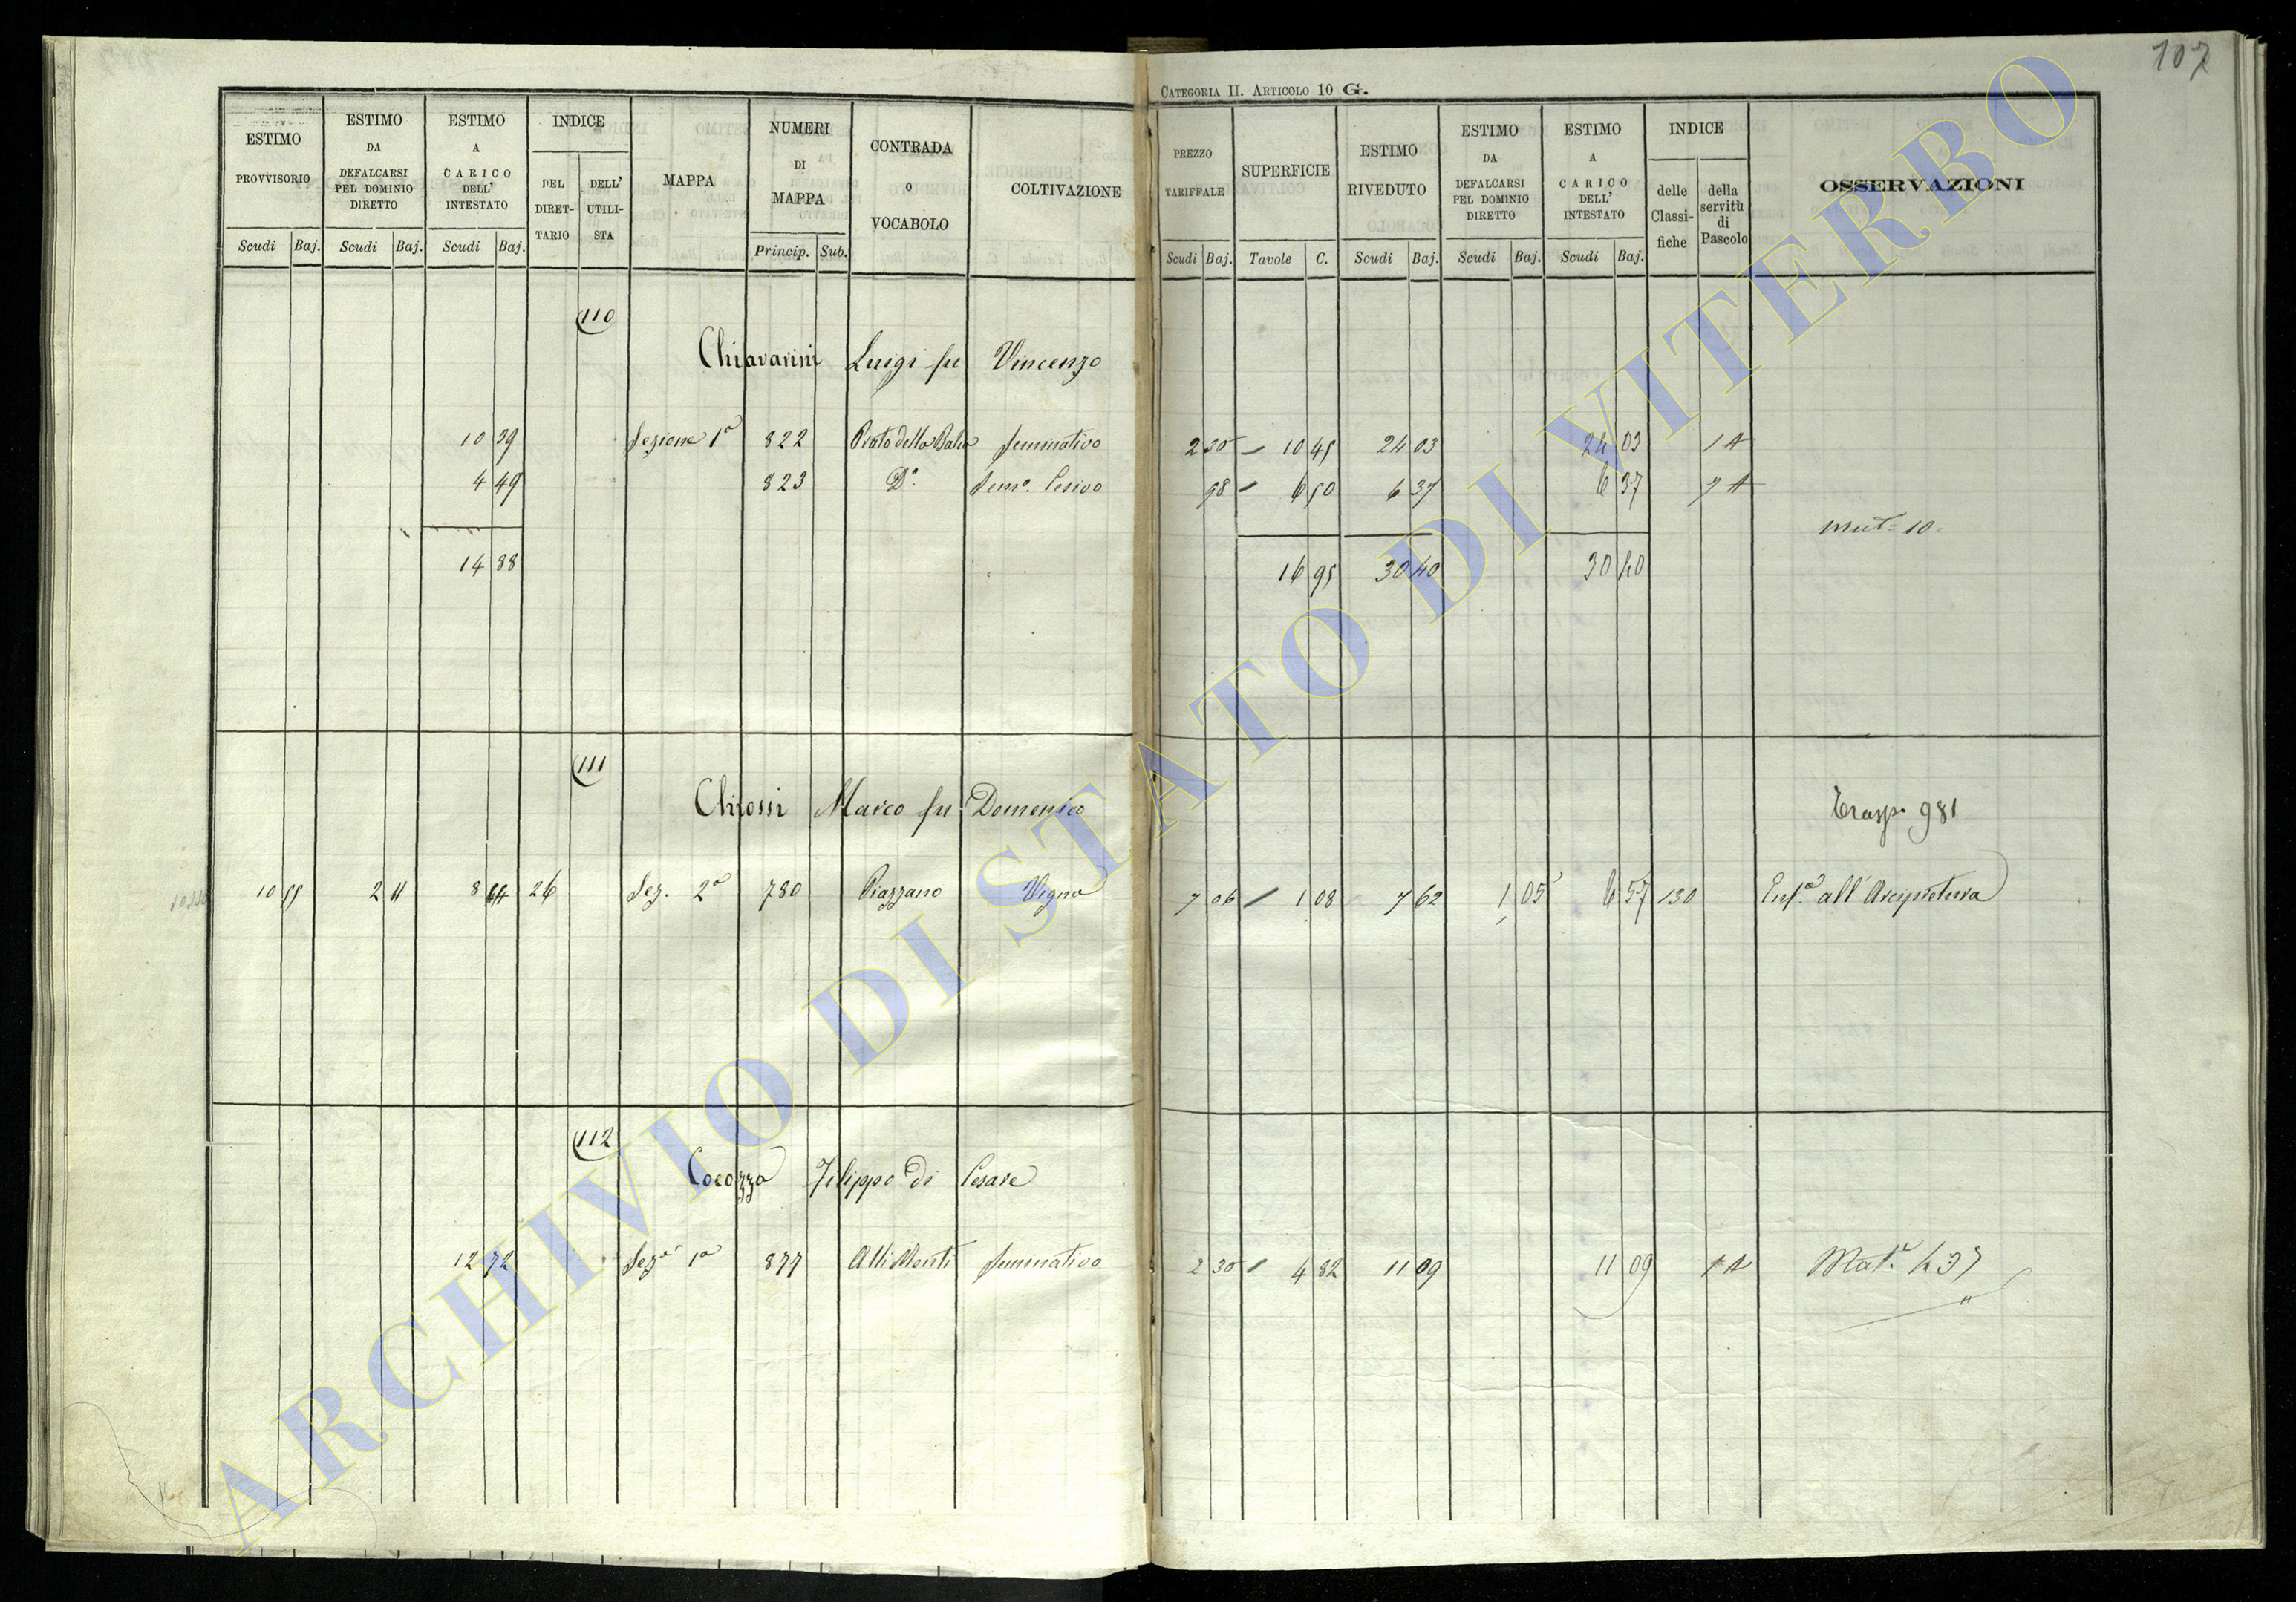 107
CATEGORIA II. ARTICOLO 10 G.
ESTIMO PROVVISORIO Scudi Baj.
ESTIMO DA DEFALCARSI PEL DOMINIO DIRETTO Scudi Baj.
ESTIMO A CARICO DELL' INTESTATO Scudi Baj.
INDICE DEL DIRET-TARIO DELL' UTILI-STA
MAPPA
NUMERI DI MAPPA Princip. Sub.
CONTRADA O VOCABOLO
COLTIVAZIONE
PREZZO TARIFFALE Scudi Baj.
SUPERFICIE Tavole C.
ESTIMO RIVEDUTO Scudi Baj.
ESTIMO DA DEFALCARSI PEL DOMINIO DIRETTO Scudi Baj.
ESTIMO A CARICO DELL' INTESTATO Scudi Baj.
INDICE delle Classi-fiche della servitù di Pascolo
OSSERVAZIONI
110
Chiavarini Luigi fu Vincenzo
10 39 Sezione 1ª 822 Prato della seminativo 2 30 10 45 24 03 24 03 1 A
4 49 823 Dº. Semº. Cesivo 98 6 50 6 37 6 37 7 A
mut= 10=
14 88 16 95 30 40 30 40
111
Chirossi Marco fu Domenico
Trasp. 981
10 55 2 11 8 44 26 Sez. 2ª 780 Piazzano Vigna 7 06 1 08 7 62 1 05 6 57 130 Enfª. all'Arcipretura
112
Cocozza Filippo di Cesare
12 72 Sezª 1ª 877 Alli Monti seminativo 2 30 4 82 11 09 11 09 1 A Matª. 437
ARCHIVIO DI STATO DI VITERBO